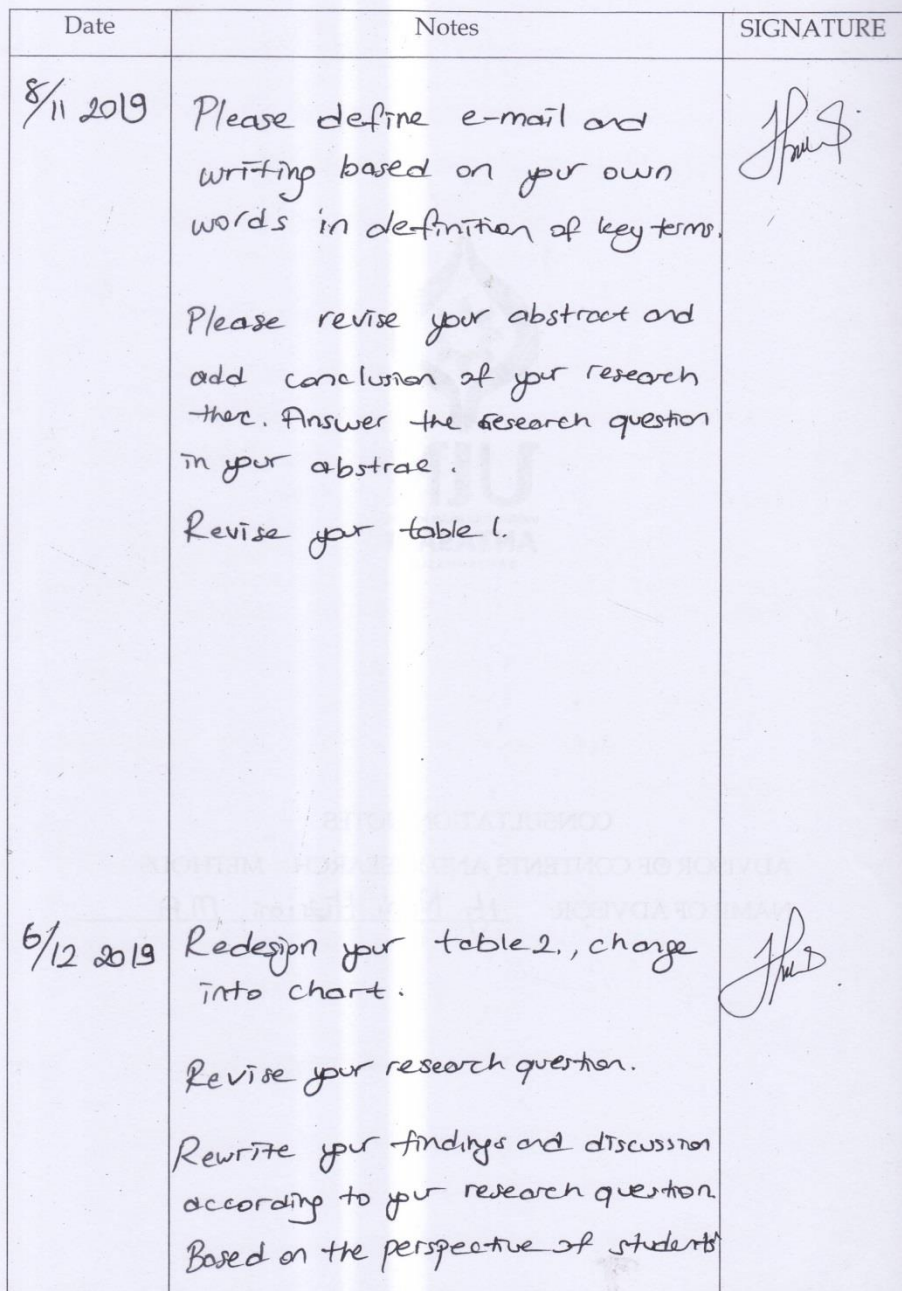 Date Notes SIGNATURE
8/11 2019 Please define e-mail and
writing based on your own
words in definition of key terms.
Please revise your abstract and
add conclusion of your research
there. Answer the research question
in your abstrac.
Revise your table 1.
UIN
ANTASARI
CONSULTATION NOTES
ADVISOR OF CONTENTS AND RESEARCH METHODS
NAME OF ADVISOR
6/12 2019 Redesign your table 2., change
into chart.
Revise your research question.
Rewrite your findings and discussion
according to your research question
Based on the perspective of students